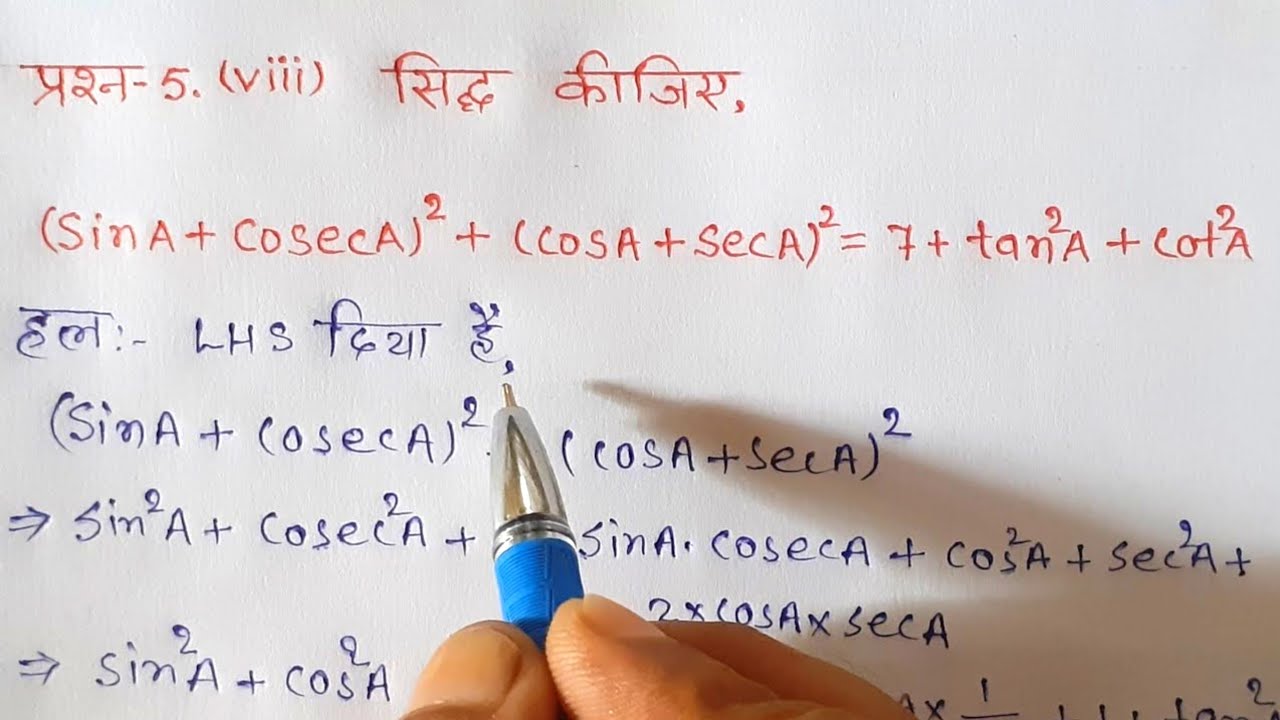 प्रश्न- 5. (viii) सिद्ध कीजिए,
(SinA + CosecA)² + (CosA + SecA)² = 7 + tan²A + cot²A
हल:- LHS दिया है,
(SinA + CosecA)² (CosA + SecA)²
⇒ Sin²A + Cosec²A + SinA. CosecA + Cos²A + Sec²A +
2×CosA×SecA
⇒ Sin²A + Cos²A